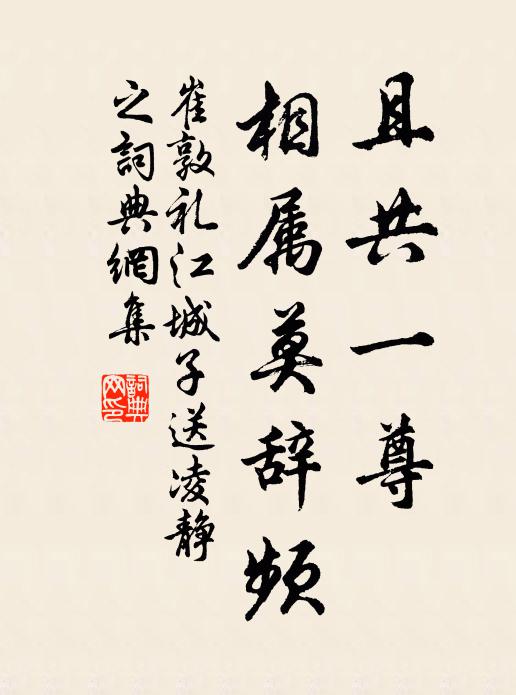 且共一尊
相属莫辞频
崔敦礼江城子送凌静
之詞典網集
詞典网印